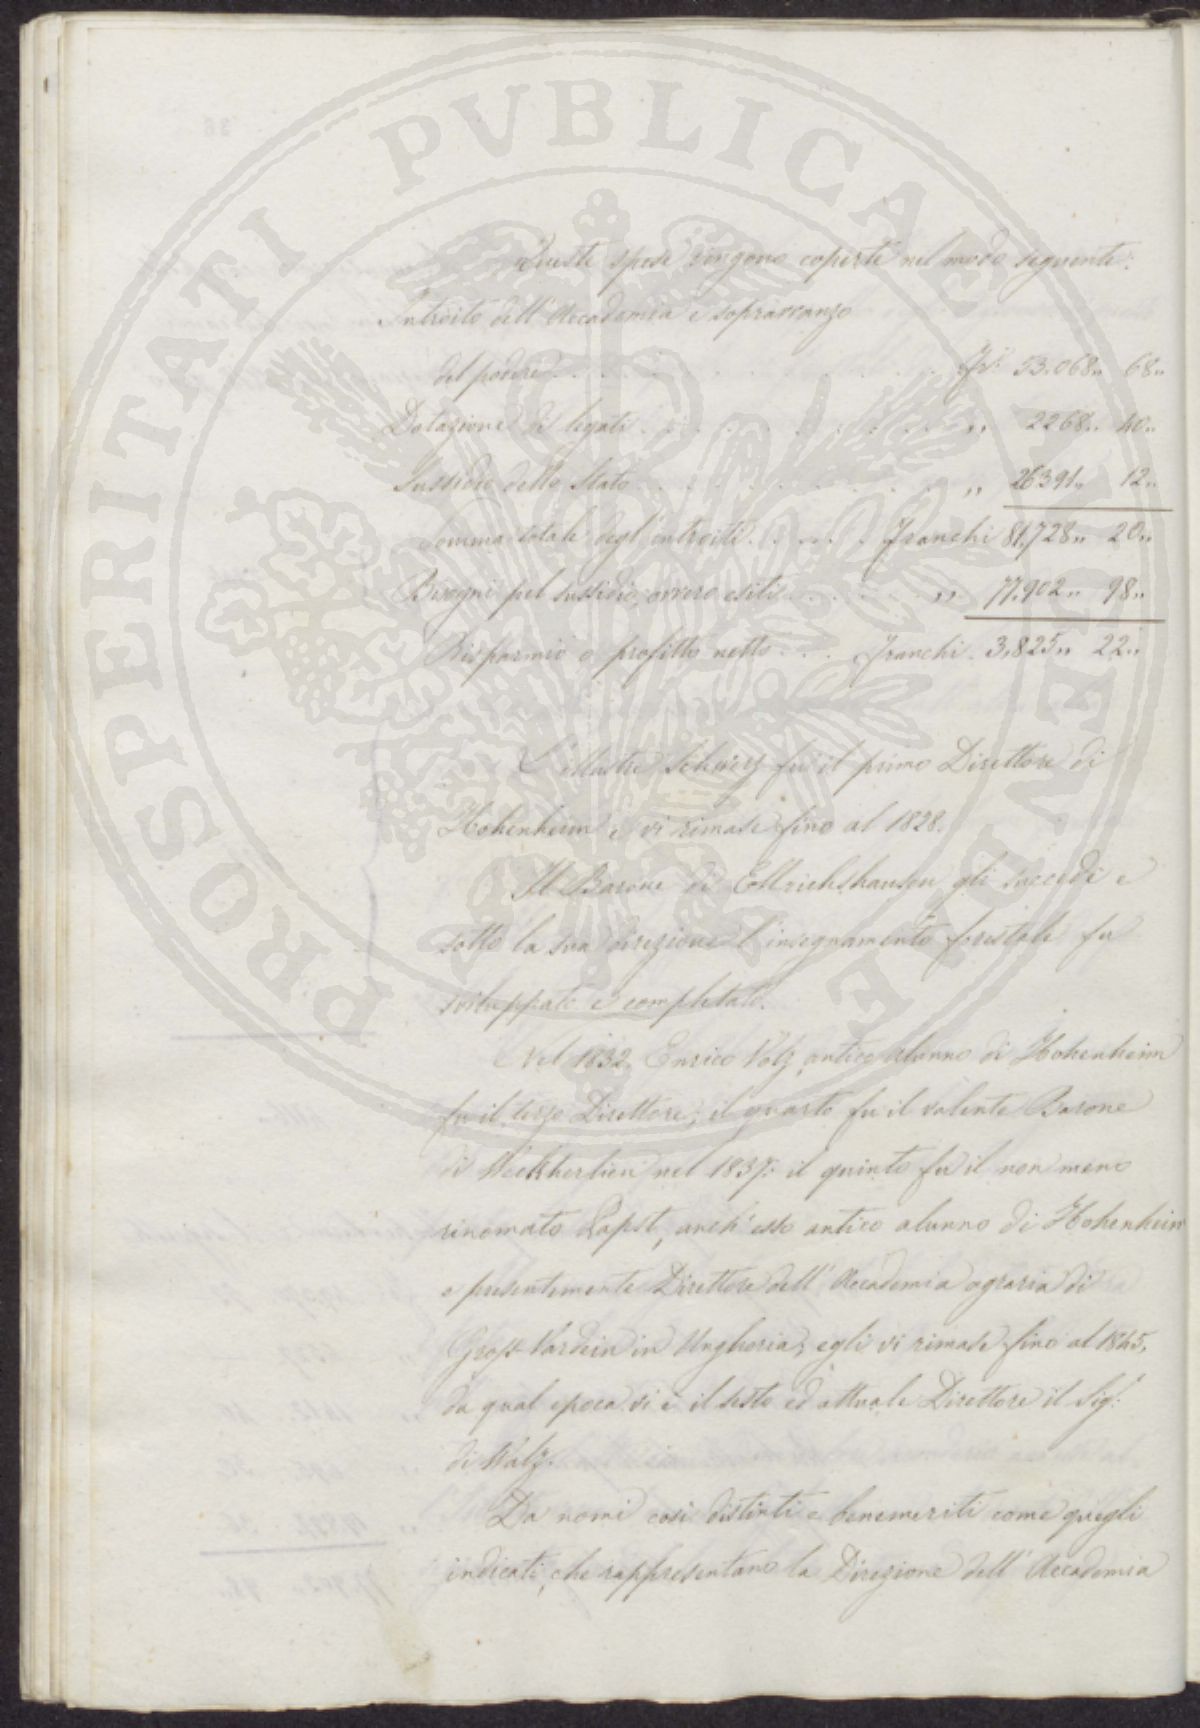 PROSPERITATI PVBLICAE AVGENDAE
Queste spese vengono coperte nel modo seguente:
Introito dell' Accademia e sopravvanzo
del podere . . . . . . . . . . . Fr. 53.068,, 68,,
Dotazione di legati . . . . . . . . . . ,, 2268,, 40,,
Sussidio dello Stato . . . . . . . . . . ,, 26391,, 12,,
Somma totale degl' introiti . . . . . . Franchi 81,728,, 20,,
Bisogni pel sussidio, ovvero esiti . . . . . . ,, 77.902,, 98,,
Risparmio o profitto netto . . . Franchi. 3,825,, 22,,
L' illustre Schwerz fu il primo Direttore di
Hohenheim e vi rimase fino al 1828.
Il Barone di Ellrichshausen gli succedè e
sotto la sua direzione l' insegnamento forestale fu
sviluppato e completato.
Nel 1832. Enrico Volz, antico alunno di Hohenheim
fu il terzo Direttore; il quarto fu il valente Barone
di Weckherlien nel 1837: il quinto fu il non meno
rinomato Papst, anch' esso antico alunno di Hohenheim
e presentemente Direttore dell' Accademia agraria di
Gross Vardein in Ungheria; egli vi rimase fino al 1845,
da qual epoca vi è il sesto ed attuale Direttore il Sig.
di Walz.
Da nomi così distinti e benemeriti come quegli
indicati, che rappresentano la Direzione dell' Accademia